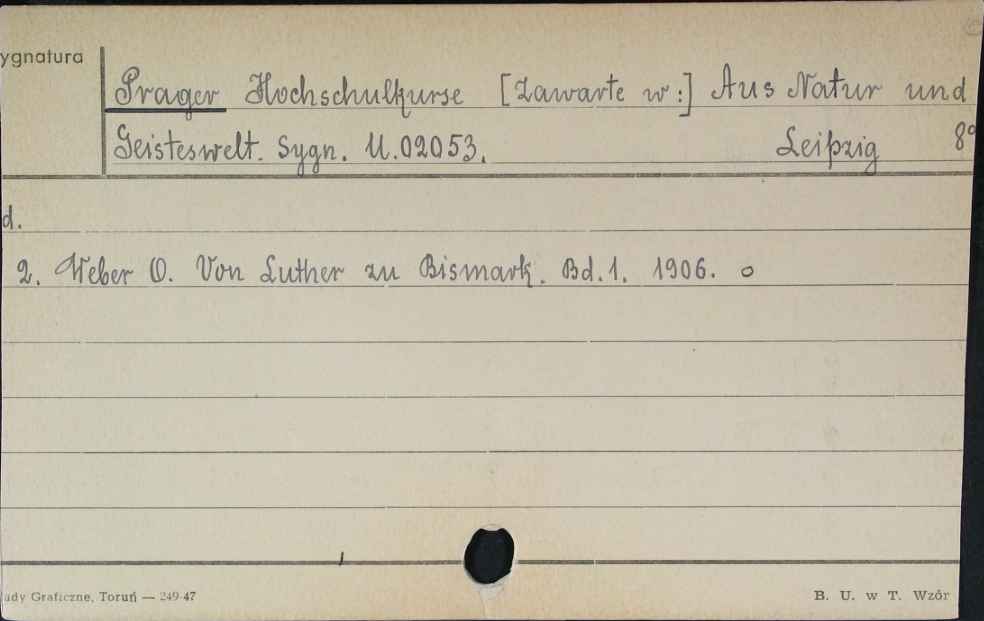 ygnatura
Prager Hochschulkurse [Zawarte w:] Aus Natur und
Geisteswelt. Sygn. U.02053. Leipzig 8°
d.
2. Weber O. Von Luther zu Bismark. Bd.1. 1906. o
udy Graficzne, Toruń — 249-47
B. U. w T. Wzór